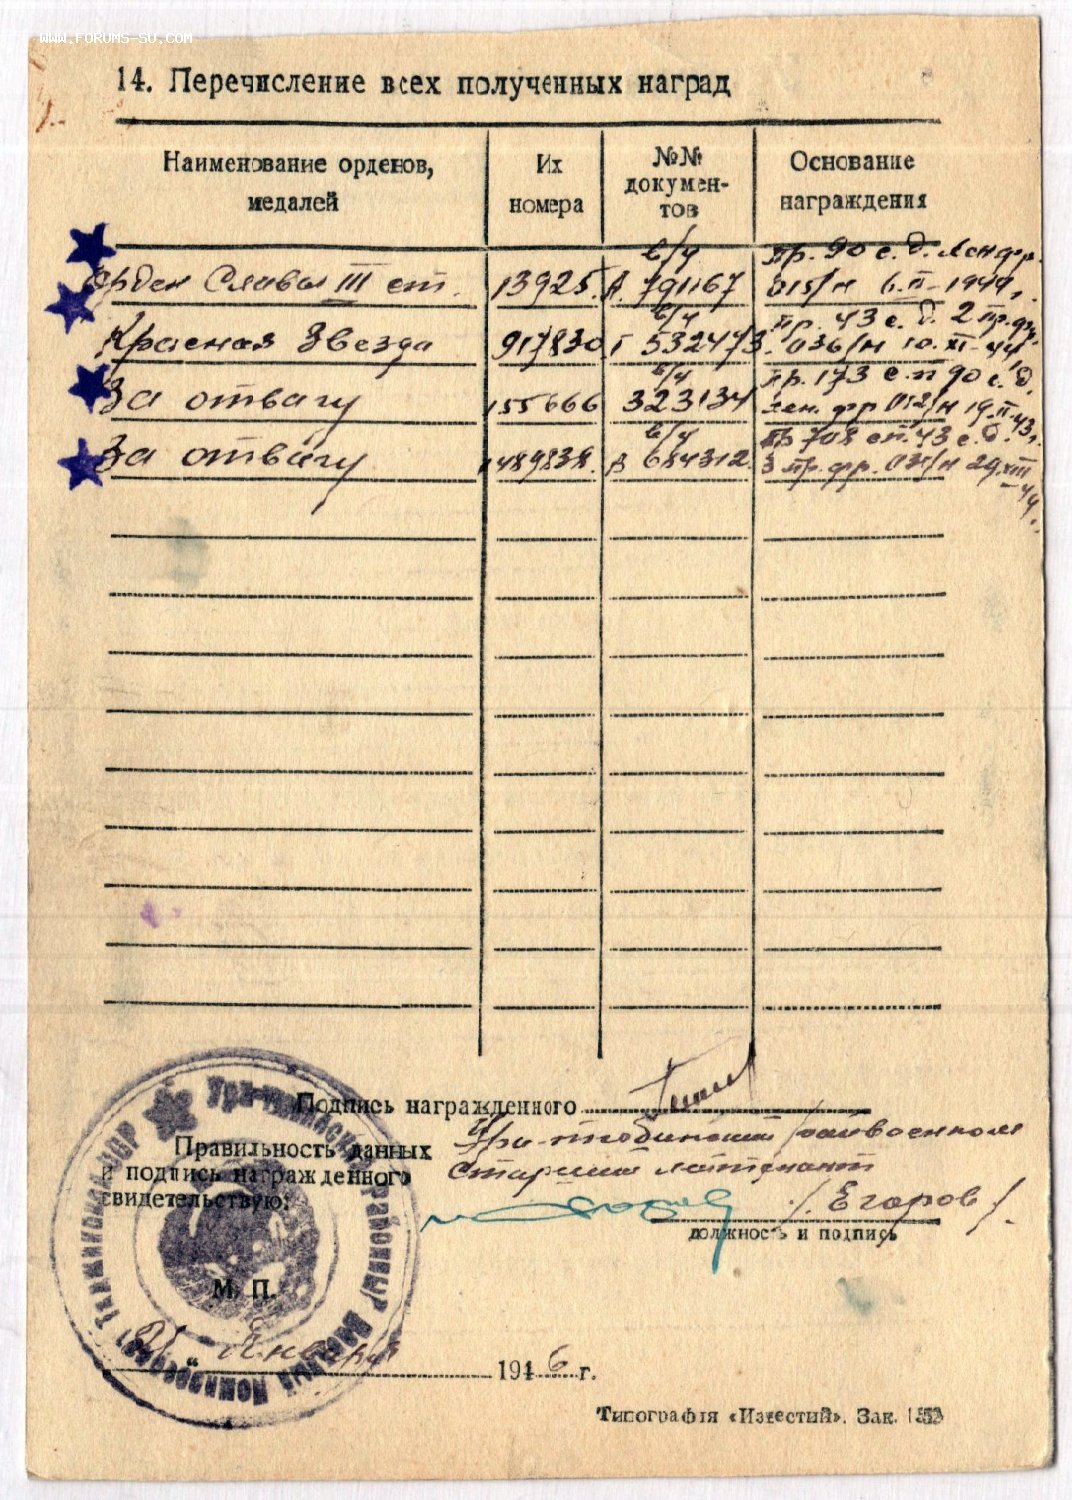 WWW.FORUMS-SU.COM
14. Перечисление всех полученных наград
Наименование орденов, медалей
Их номера
№№ документов
Основание награждения
Орден Славы III ст. 13925. в/ч А. 791167 пр. 90 с. д. Лен фр. 015/н 6.II-1944г.
Красная Звезда 917830 в/ч Г 532473 пр. 43 с. д. 2 пр. фр. 036/н 10.XI-44
За отвагу 155666 в/ч 323134 пр. 173 с.п 90 с. д. Лен. фр 012/н 19.II.43г.
За отвагу 1489838. в/ч А 684312. пр 708 сп. 43 с. д. 3 пр. фр. 034/н 29. -44
Подпись награжденного
Правильность данных
и подпись награжденного
свидетельствую:
Ура-Тюбинский райвоенком
Старший лейтенант
/. Егоров /.
должность и подпись
М. П.
21 Января 1946 г.
Типография «Известий». Зак. 1553